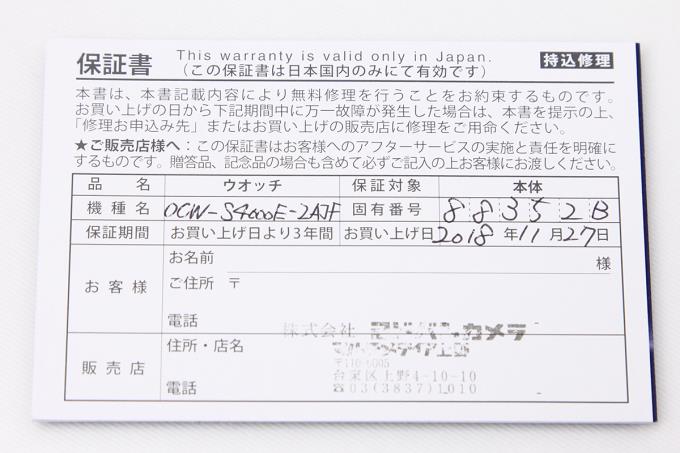 保証書
This warranty is valid only in Japan.
(この保証書は日本国内のみにて有効です)
持込修理
本書は、本書記載内容により無料修理を行うことをお約束するものです。
お買い上げの日から下記期間中に万一故障が発生した場合は、本書を提示の上、
「修理お申込み先」またはお買い上げの販売店に修理をご用命ください。
★ご販売店様へ:この保証書はお客様へのアフターサービスの実施と責任を明確に
するものです。贈答品、記念品の場合も含めて必ずご記入の上お客様にお渡しください。
品名 ウオッチ 保証対象 本体
機種名 OCW-S4000E-2AJF 固有番号 88352B
保証期間 お買い上げ日より3年間 お買い上げ日 2018年11月27日
お客様
お名前 様
ご住所 〒
電話
株式会社 カメラ
販売店
住所・店名
台東区上野4-10-10
電話 ☎03(3837)1010